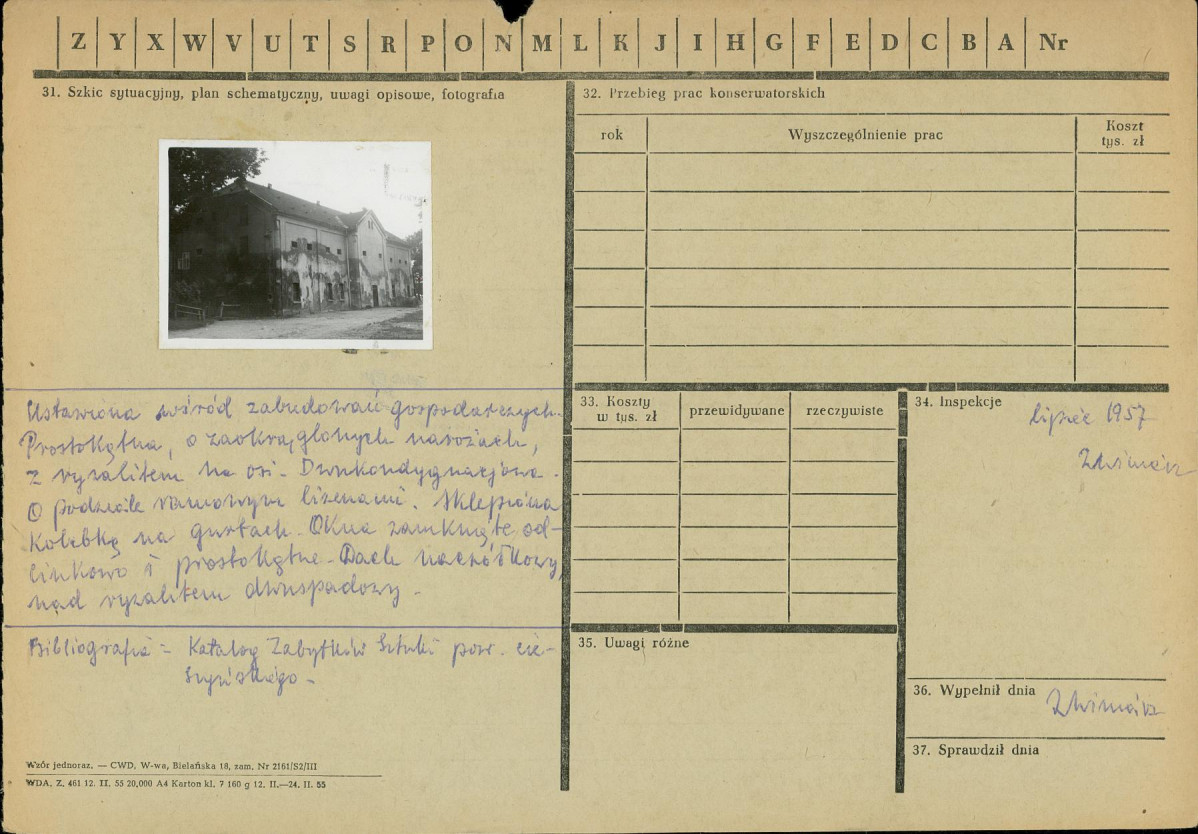 Z Y X W V U T S R P O N M L K J I H G F E D C B A Nr
31. Szkic sytuacyjny, plan schematyczny, uwagi opisowe, fotografia
Ustawiona wśród zabudowań gospodarczych.
Prostokątna, o zaokrąglonych narożach,
z ryzalitem na osi. Dwukondygnacjowa.
O podziale ramowym lizenami. Sklepiona
kolebką na gurtach. Okna zamknięte od-
cinkowo i prostokątne. Dach naczółkowy,
nad ryzalitem dwuspadowy.
Bibliografia = Katalog Zabytków Sztuki pow. cie-
szyńskiego.
Wzór jednoraz. — CWD, W-wa, Bielańska 18, zam. Nr 2161/S2/III
WDA. Z. 461 12. II. 55 20,000 A4 Karton kl. 7 160 g 12. II.—24. II. 55
32. Przebieg prac konserwatorskich
rok
Wyszczególnienie prac
Koszt
tys. zł
33. Koszty
w tys. zł
przewidywane
rzeczywiste
34. Inspekcje
lipiec 1957
35. Uwagi różne
36. Wypełnił dnia
37. Sprawdził dnia